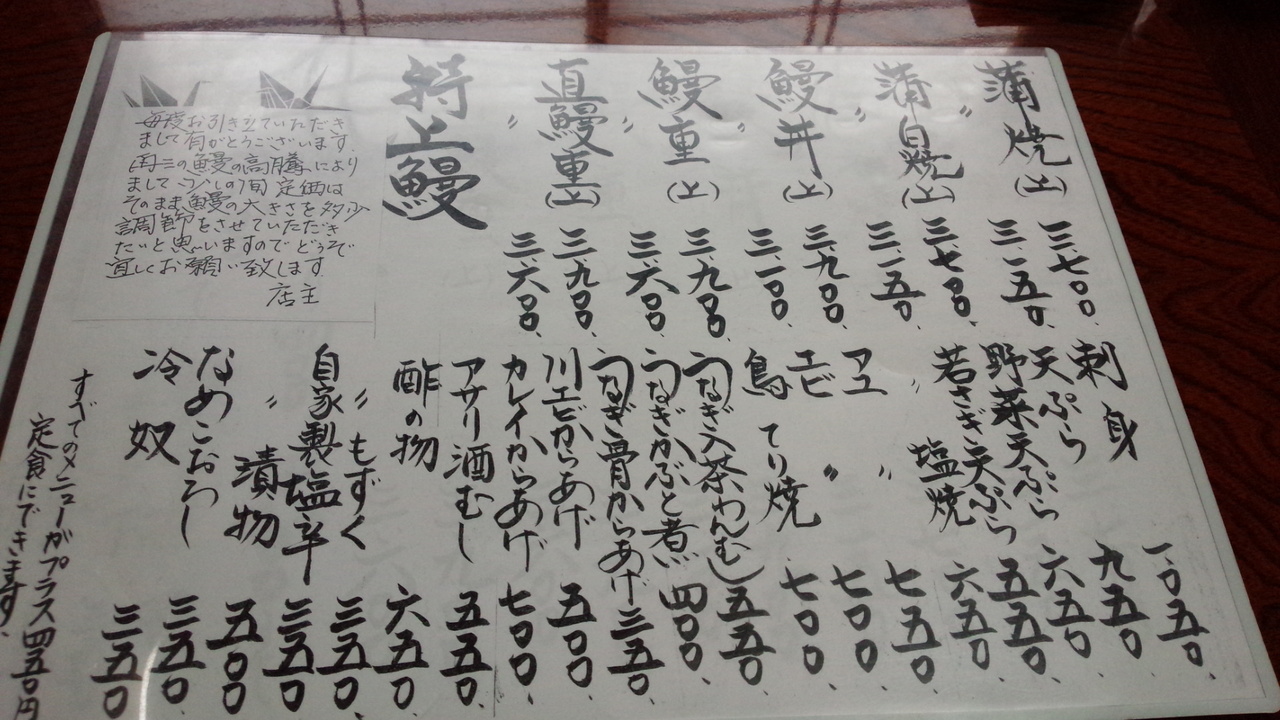 蒲焼(上) 三、七〇〇
〃 三、一五〇
蒲白焼(上) 三、七〇〇
〃 三、一五〇
鰻丼(上) 三、九〇〇
〃 三、一〇〇
鰻重(上) 三、九〇〇
〃 三、六〇〇
直鰻重(上) 三、九〇〇
〃 三、六〇〇
特上鰻
毎度お引き立ていただき
まして有がとうございます
の鰻の高騰により
まして 定価は
そのまま鰻の大きさを多少
調節をさせていただき
たいと思いますのでどうぞ
宜しくお願い致します
店主
刺身 一、〇五〇、
天ぷら 九五〇、
野菜天ぷら 六五〇、
若さぎ天ぷら 五五〇、
〃 塩焼 六五〇、
アユ 〃 七五〇、
エビ 〃 七〇〇、
鳥てり焼 七〇〇、
うなぎ入茶わんむし 五五〇、
うなぎかぶと煮 四〇〇、
うなぎ骨からあげ 三五〇、
川エビからあげ 五〇〇、
カレイからあげ 七〇〇、
アサリ酒むし 五五〇、
酢の物 六五〇、
〃 もずく 三五〇、
自家製塩辛 三五〇、
〃 漬物 五〇〇
なめこおろし 三五〇、
冷奴 三五〇
すべてのメニューがプラス四五〇円
定食にできます、